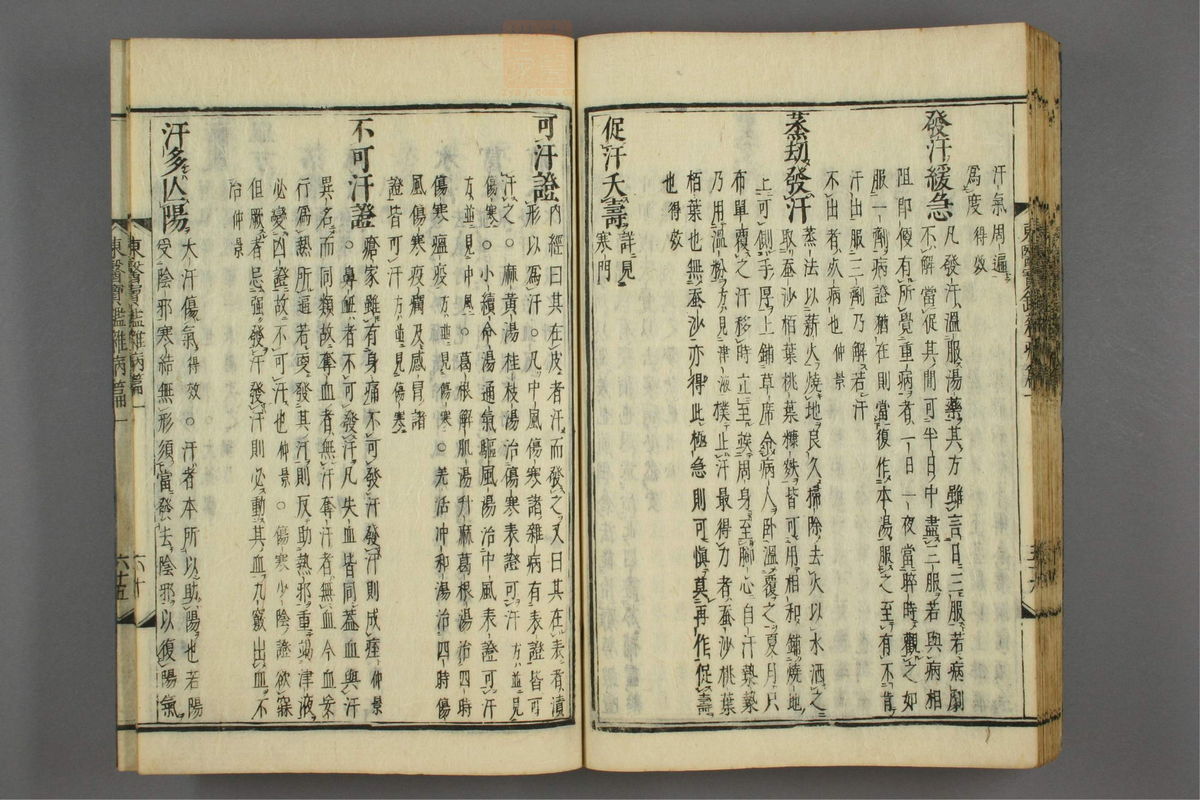 汗氣周遍
爲度得效
發汗緩急
凡發汗溫服湯藥其方雖言日三服若病劇
不解當促其間可半日中盡三服若與病相
阻卽便有所覺重病者一日一夜當晬時觀之如
服一劑病證猶在則當復作本湯服之至有不肯
汗出服三劑乃解若汗
不出者死病也仲景
蒸劫發汗
蒸法以薪火燒地良久掃除去火以水洒之
取蚕沙栢葉桃葉糠麩皆可用相和鋪燒地
上可側手厚上鋪草席令病人臥溫覆之夏月只
布單覆之汗移時立至俟周身至脚心自汗漐漐
乃用溫粉方見津液撲止汗最得力者蚕沙桃葉
栢葉也無蚕沙亦得此極急則可愼莫再作促壽
也得效
促汗夭壽
詳見
寒門
可汗證
內經曰其在皮者汗而發之又曰其在表者漬
形以爲汗○凡中風傷寒諸雜病有表證皆可
汗之○麻黃湯桂枝湯治傷寒表證可汗方並見
傷寒○小續命湯通氣驅風湯治中風表證可汗
方並見中風○葛根解肌湯升麻葛根湯治四時
傷寒瘟疫方並見傷寒○羌活冲和湯治四時傷
風傷寒疫癘及感冒諸
證皆可汗方並見傷寒
不可汗證
瘡家雖有身痛不可發汗發汗則成痓仲景
○鼻衄者不可發汗凡失血皆同蓋血與汗
異名而同類故奪血者無汗奪汗者無血今血妄
行爲熱所逼若更發其汗則反助熱邪重竭津液
必變凶證故不可汗也仲景○傷寒少陰證欲寐
但厥者忌強發汗發汗則必動其血九竅出血不
治仲景
汗多亾陽
大汗傷氣得效○汗者本所以助陽也若陽
受陰邪寒結無形須當發去陰邪以復陽氣
東醫寶鑑雜病篇一
六十五